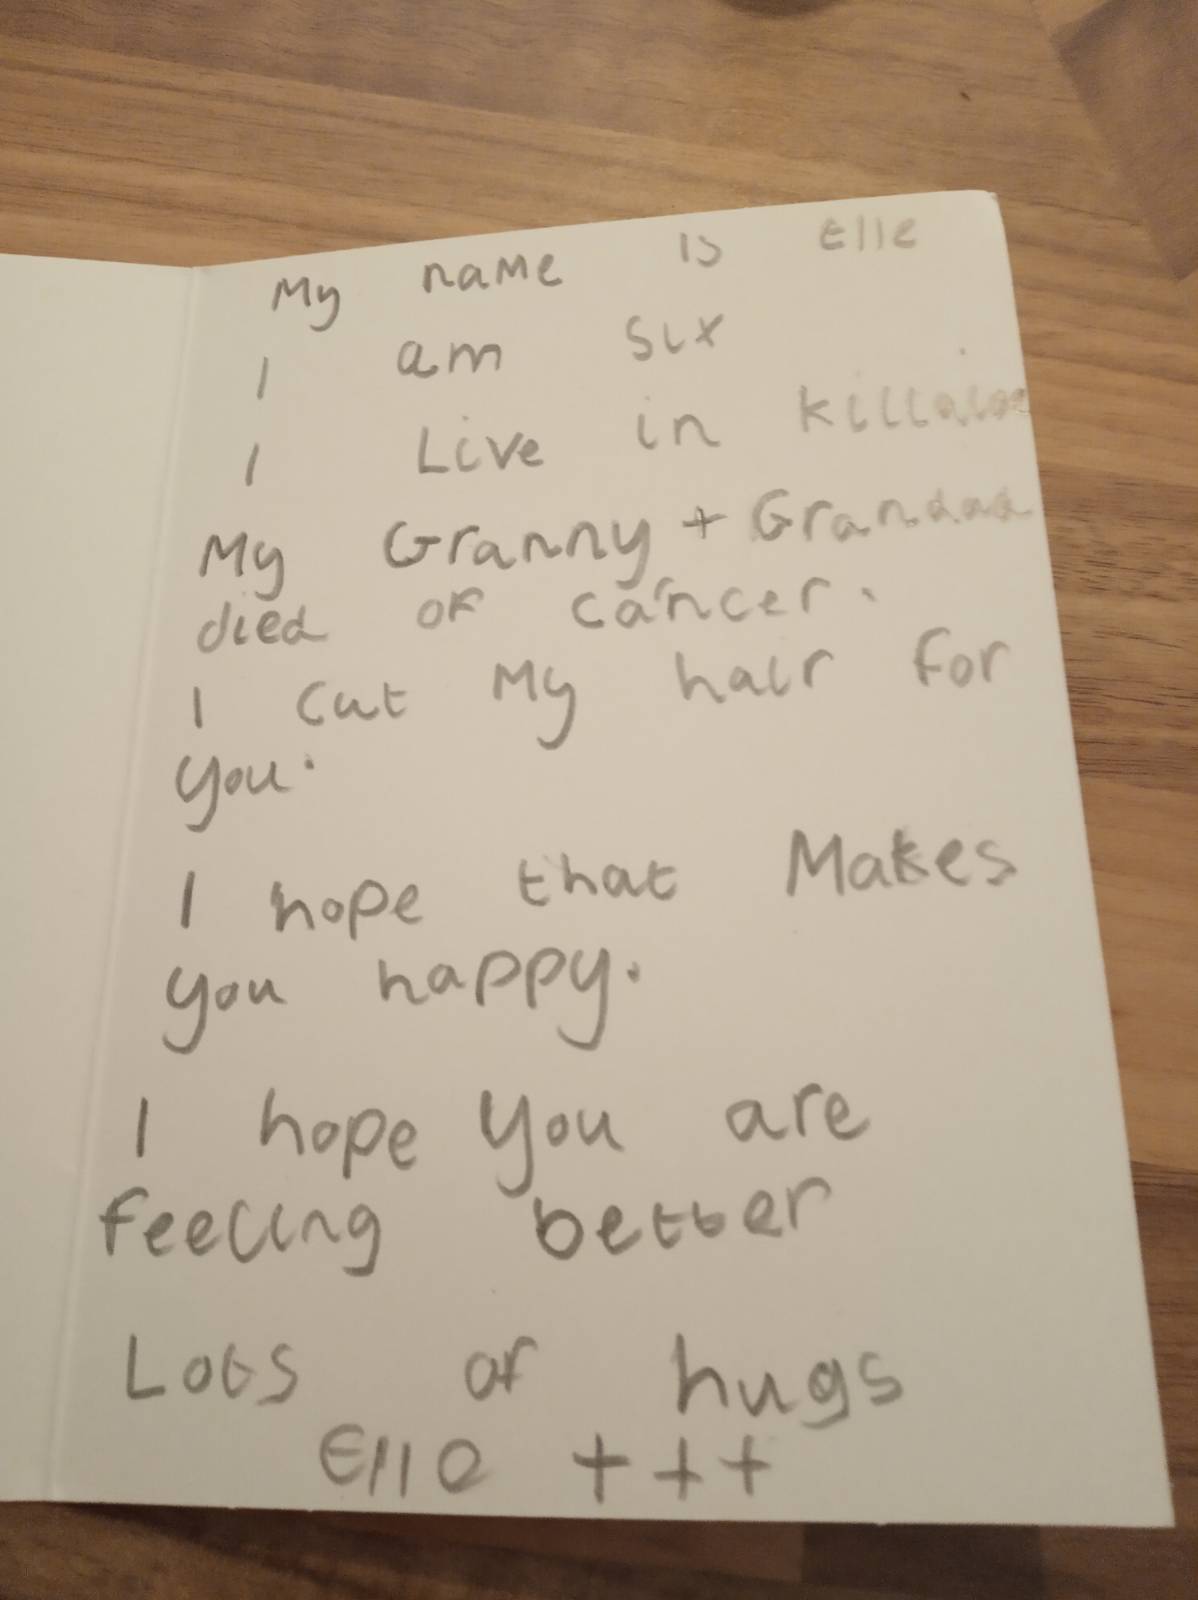 My name is Elle
I am six
I Live in Killaloe
My Granny + Grandad
died of cancer.
I cut My hair for
you.
I hope that Makes
you happy.
I hope you are
feeling better
Lots of hugs
Elle + + +